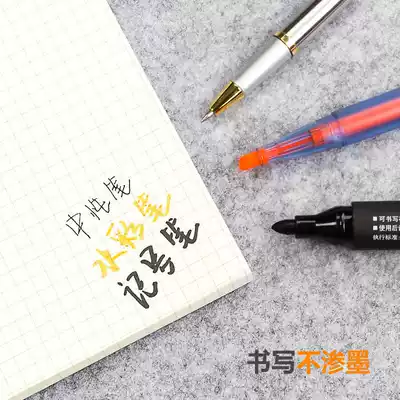 中性笔
水彩笔
记号笔
可书写
使用后
执行标准
书写不渗墨